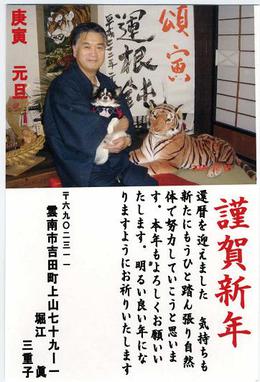 頌寅
運根鈍
庚寅 元旦
謹賀新年
還暦を迎えました 気持ちも
新たにもうひと踏ん張り自然
体で努力していこうと思いま
す。本年もよろしくお願いい
たします。明るい良い年にな
りますようにお祈りいたします
〒六九〇-二三一一
雲南市吉田町上山七十九-一
堀江 眞
三重子